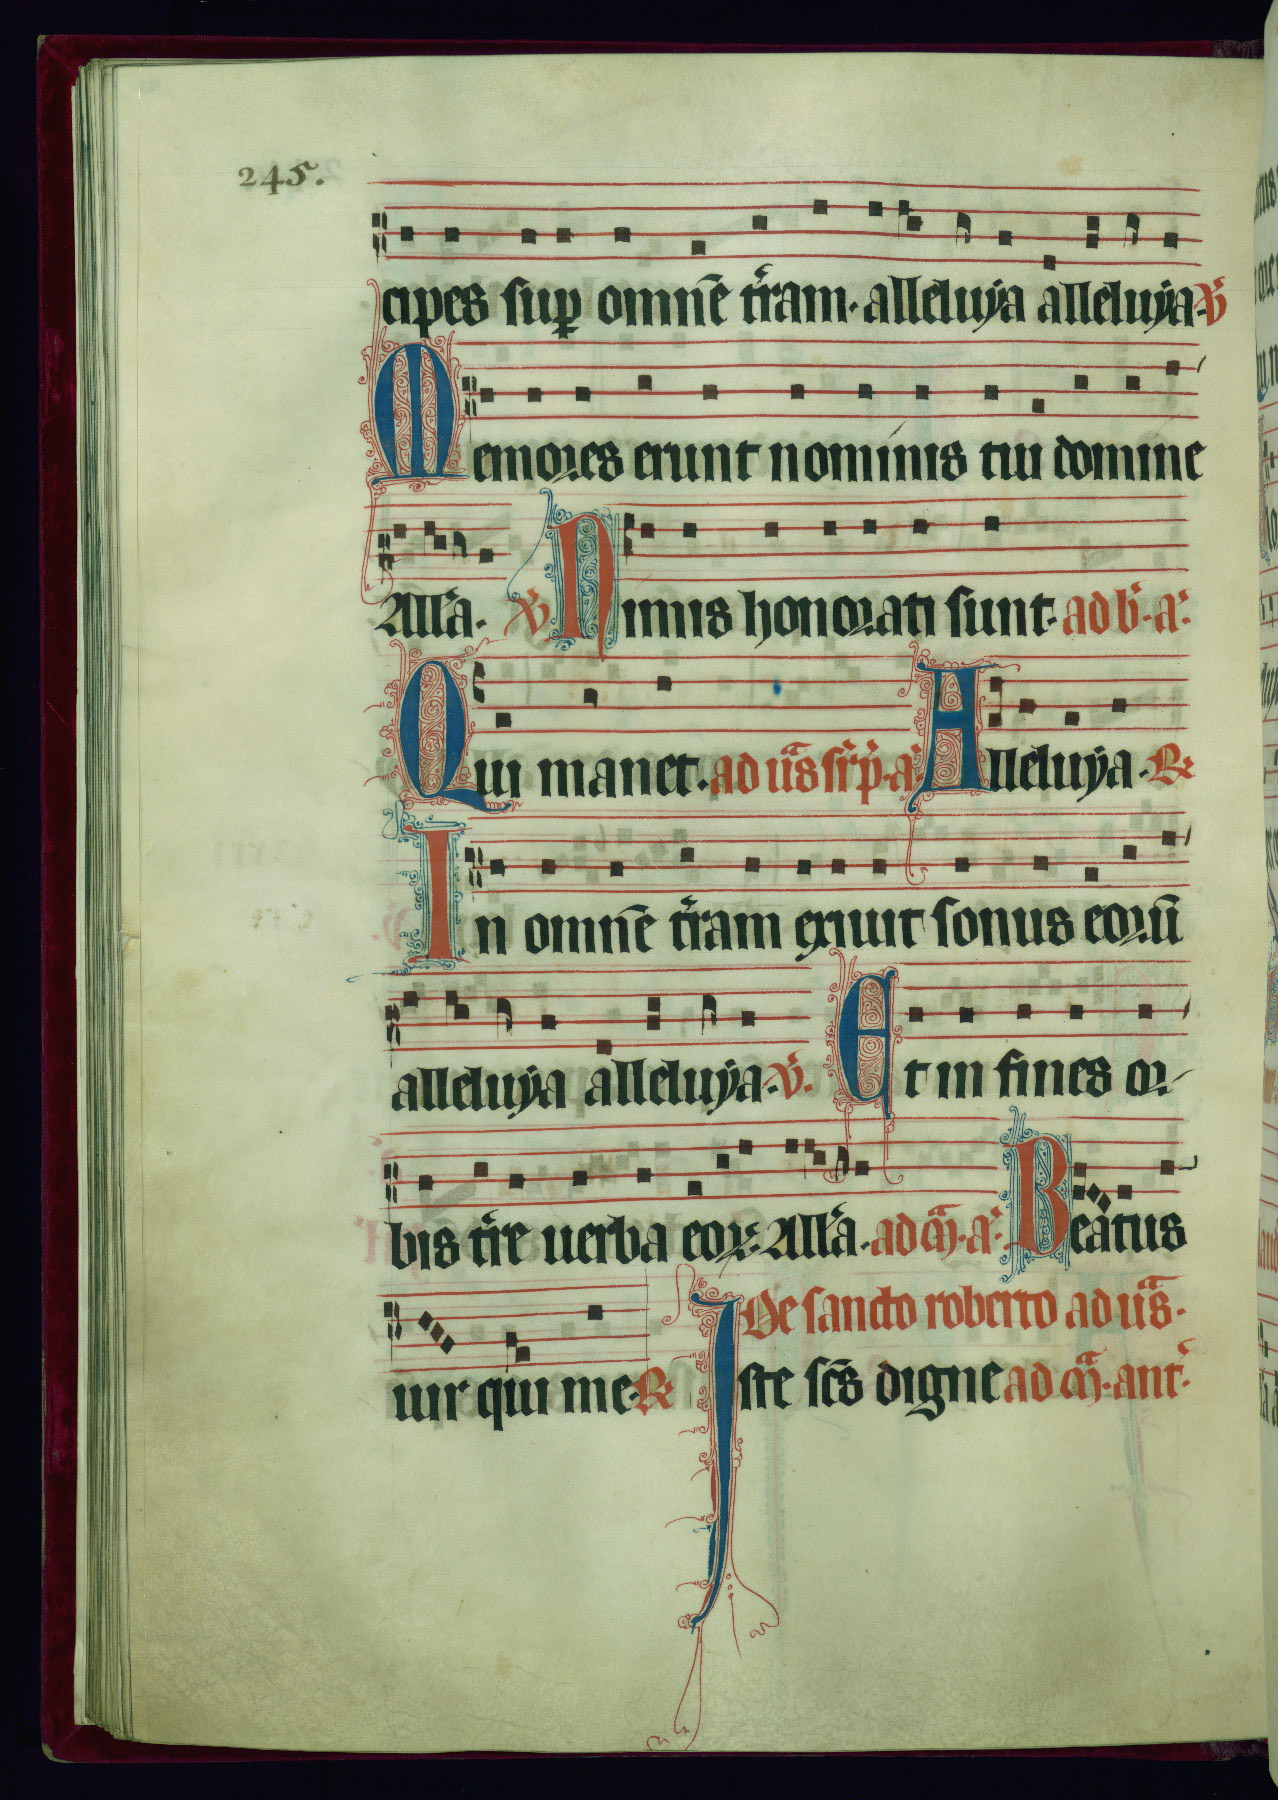 245.
cipes sup omnē t'ram. alleluẏa alleluẏa. V̓
Memores erunt nominis tui domine
All'a. V̓ Nimis honorati sunt. ad b̓. a'.
Qui manet. ad uā̓s sc̓ip̓. a' Alleluẏa. R
In omnē t'ram exiuit sonus eorū
alleluẏa alleluẏa. V̓. Et in fines or-
bis t're uerba eoꝝ. All'a. ad m̄. a'. Beatus
De sancto roberto ad uā̓s.
uir qui me. R Iste sc̄s digne ad m̄. ant'.